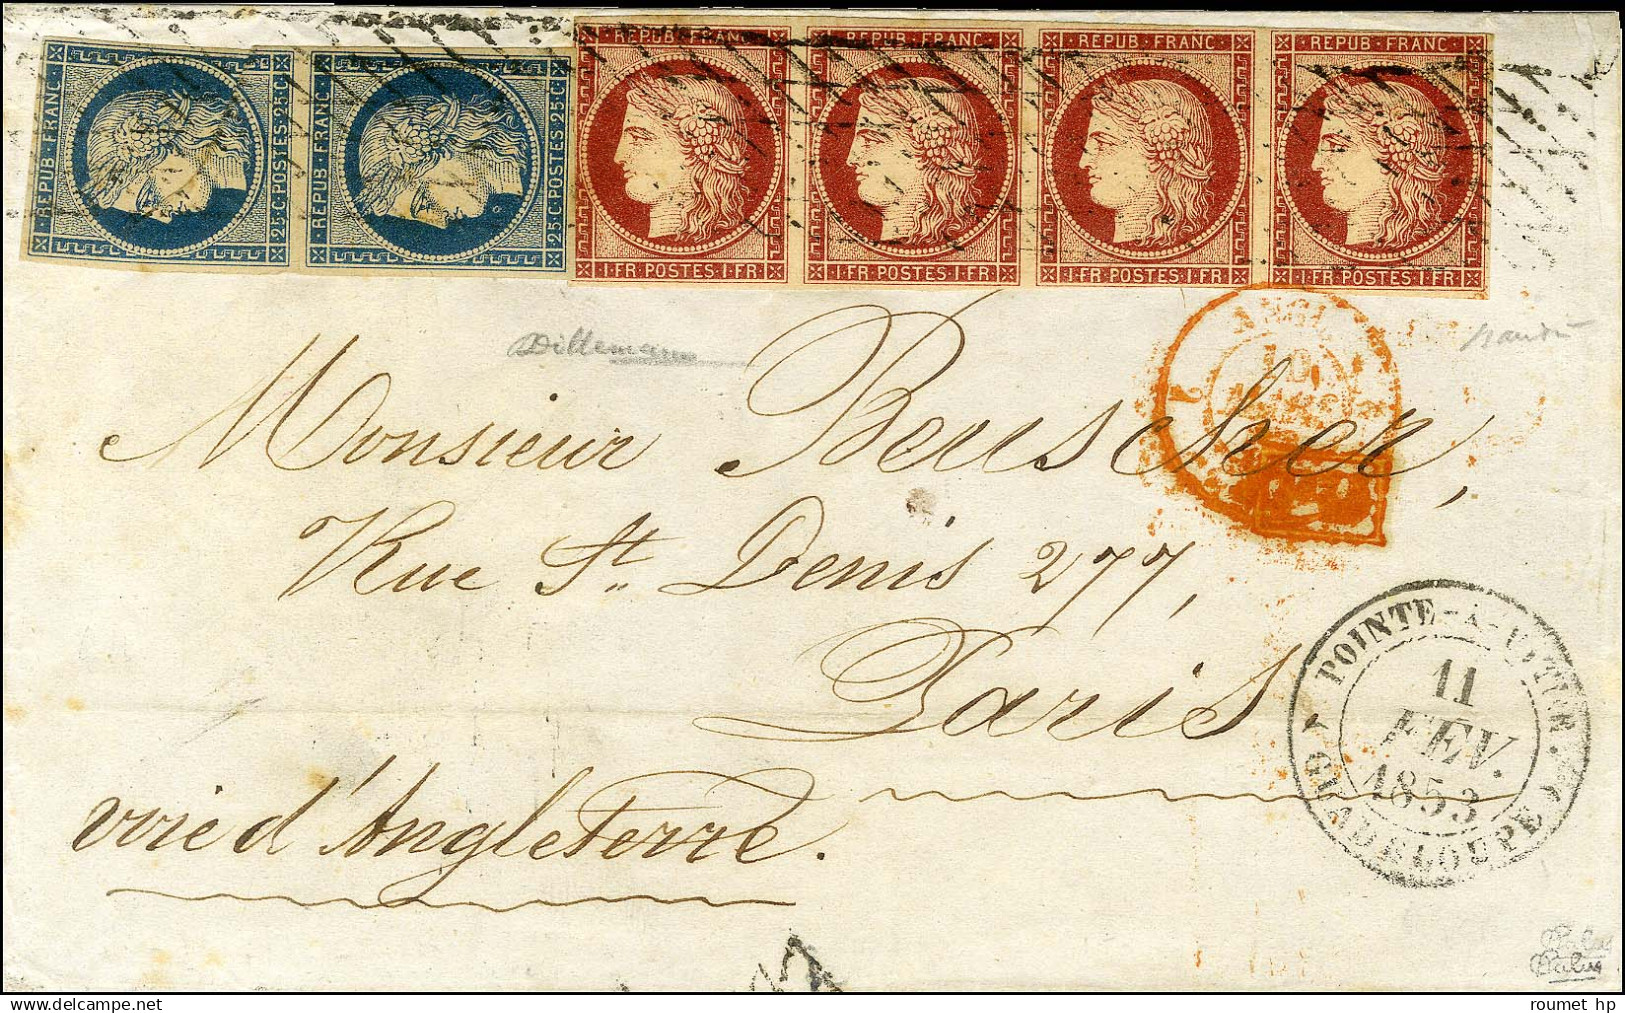 REPUB·FRANC·
25·C·POSTES·25·C
REPUB·FRANC·
25·C·POSTES·25·C
REPUB·FRANC·
1·FR·POSTES·1·FR
REPUB·FRANC·
1·FR·POSTES·1·FR
REPUB·FRANC·
1·FR·POSTES·1·FR
REPUB·FRANC·
1·FR·POSTES·1·FR
Dillemann
Monsieur Beuscher,
Rue St. Denis 277,
Paris
voie d'Angleterre.
POINTE-A-PITRE
11
FEV.
1853
GUADELOUPE
Calves
Calves
roumet hp